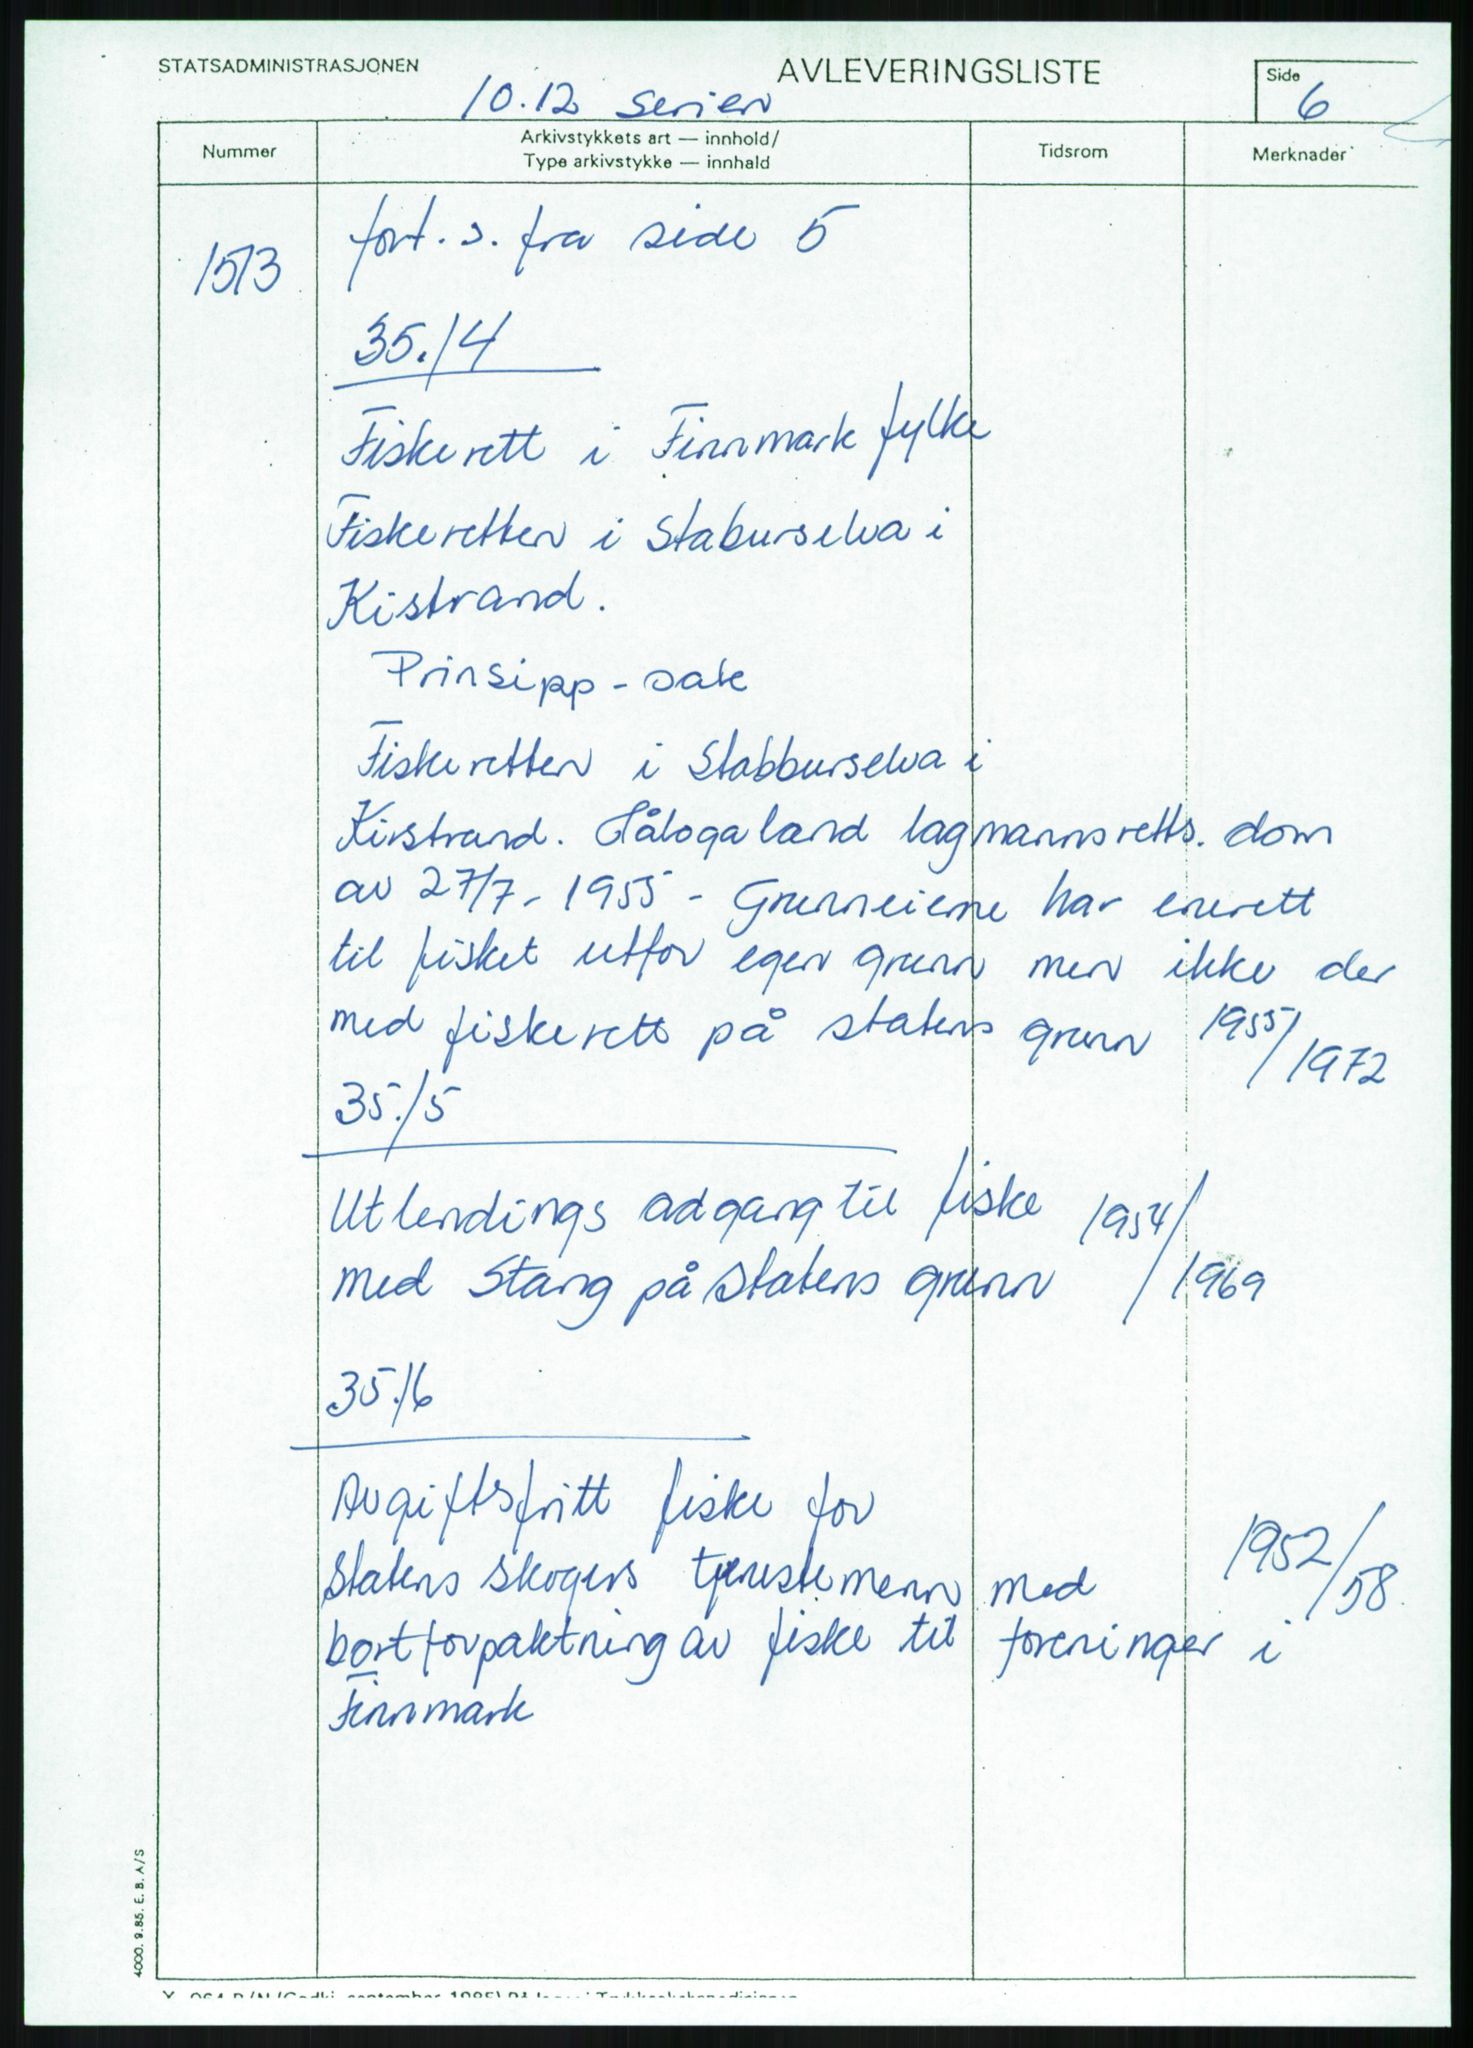 STATSADMINISTRASJONEN
AVLEVERINGSLISTE
Side
6
10.12 serien
Nummer
Arkivstykkets art — innhold/
Type arkivstykke — innhald
Tidsrom
Merknader
1513
fort. s. fra side 5
35./4
Fiskerett i Finnmark fylke
Fiskeretten i Staburselva i
Kistrand.
Prinsipp - sak
Fiskeretten i Stabburselva i
Kistrand. Hålogaland lagmannsretts. dom
av 27/7 - 1955 - Grunneierne har enerett
til fisket utfor egen grunn men ikke der
med fiskerett på statens grunn 1955/
1972
35./5
Utlendings adgang til fiske 1954/
med Stang på statens grunn /1969
35./6
Avgiftsfritt fiske for
Statens skogers tjenestemenn med 1952/58
bortforpaktning av fiske til foreninger i
Finnmark
4000. 9.85. E. B. A/S